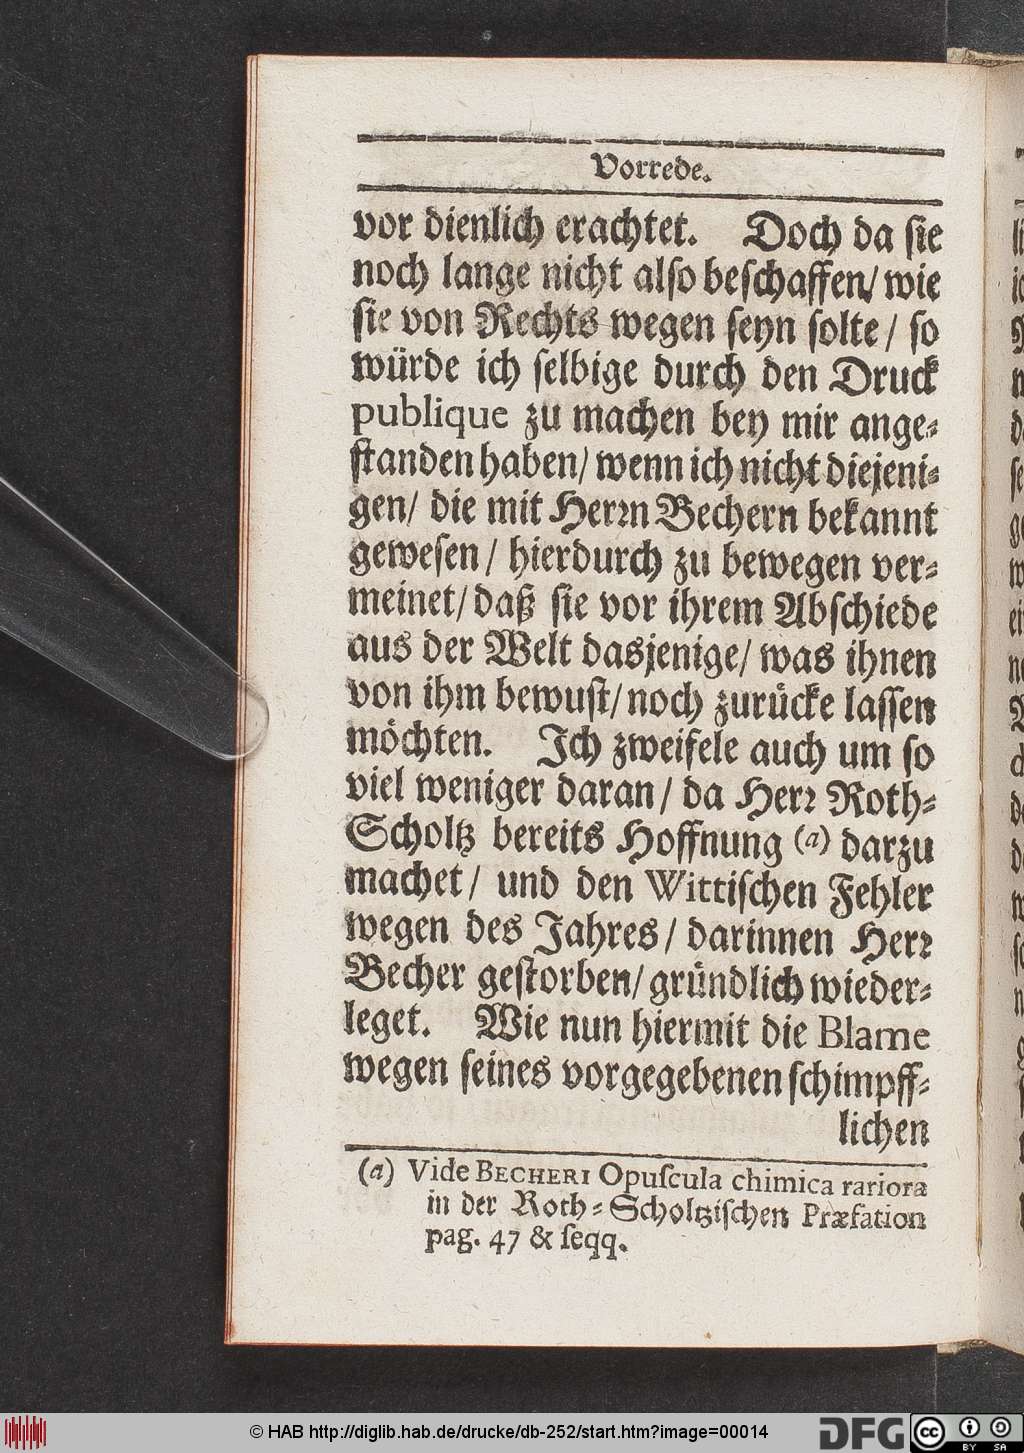 Vorrede.
vor dienlich erachtet. Doch da sie
noch lange nicht also beschaffen/ wie
sie von Rechts wegen seyn solte / so
würde ich selbige durch den Druck
publique zu machen bey mir ange-
standen haben/ wenn ich nicht diejeni-
gen/ die mit Herrn Bechern bekannt
gewesen / hierdurch zu bewegen ver-
meinet/ daß sie vor ihrem Abschiede
aus der Welt dasjenige/ was ihnen
von ihm bewust/ noch zurücke lassen
möchten. Ich zweifele auch um so
viel weniger daran / da Herr Roth-
Scholtz bereits Hoffnung (a) darzu
machet / und den Wittischen Fehler
wegen des Jahres / darinnen Herr
Becher gestorben/ gründlich wieder-
leget. Wie nun hiermit die Blame
wegen seines vorgegebenen schimpff-
lichen
(a) Vide BECHERI Opuſcula chimica rariora
in der Roth-Scholtzischen Præfation
pag. 47 & ſeqq.
© HAB http://diglib.hab.de/drucke/db-252/start.htm?image=00014
DFG
cc BY SA